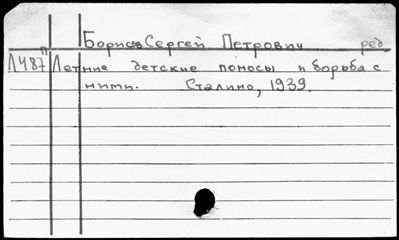 Борисов Сергей Петрович ред
Л487 Летние детские поносы и борьба с
ними. Сталино, 1939.